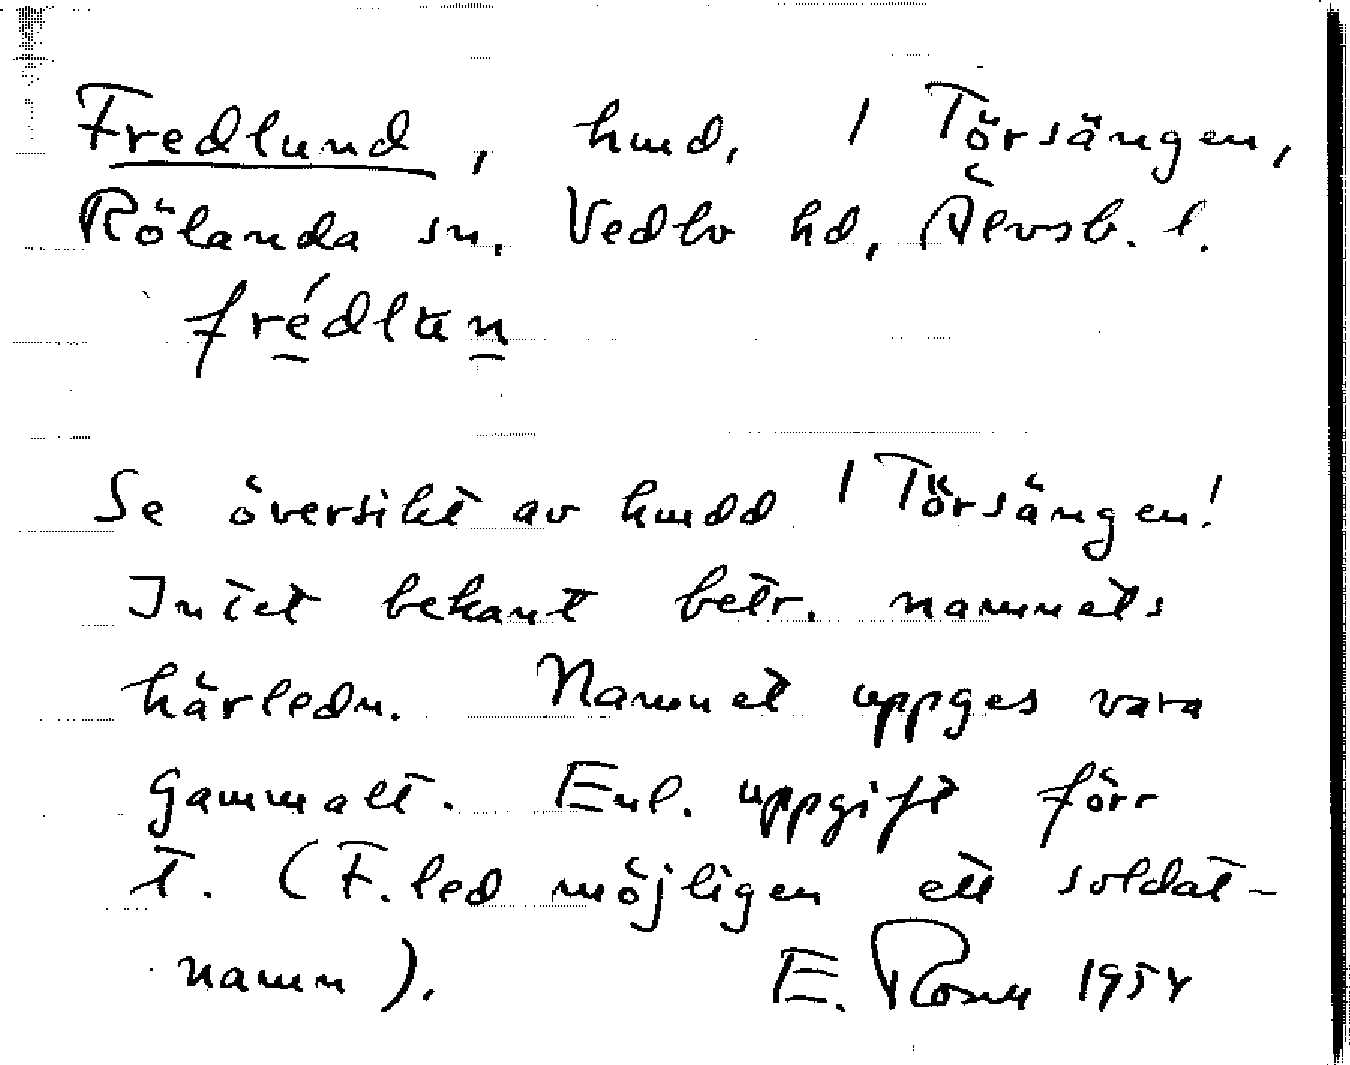 Fredlund, hmd, 1 Törsängen,
Rölanda sn, Vedbo hd, Älvsb. l.
frédlun
Se översikt av hmdd 1 Törsängen!
Intet bekant betr. namnets
härledn. Namnet uppges vara
gammalt. Enl. uppgift förr
t. (F.led möjligen ett soldat-
namn).
E. 1954